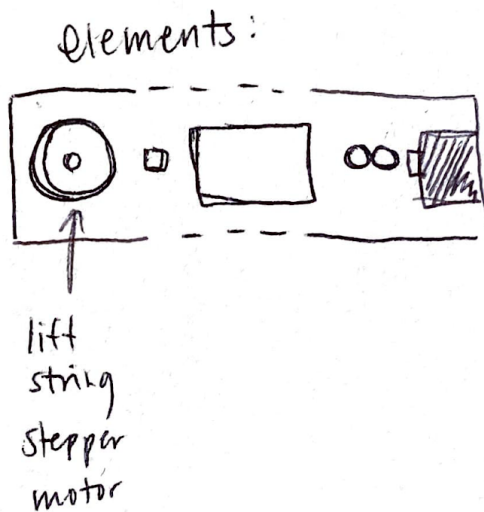 elements:
lift
string
stepper
motor